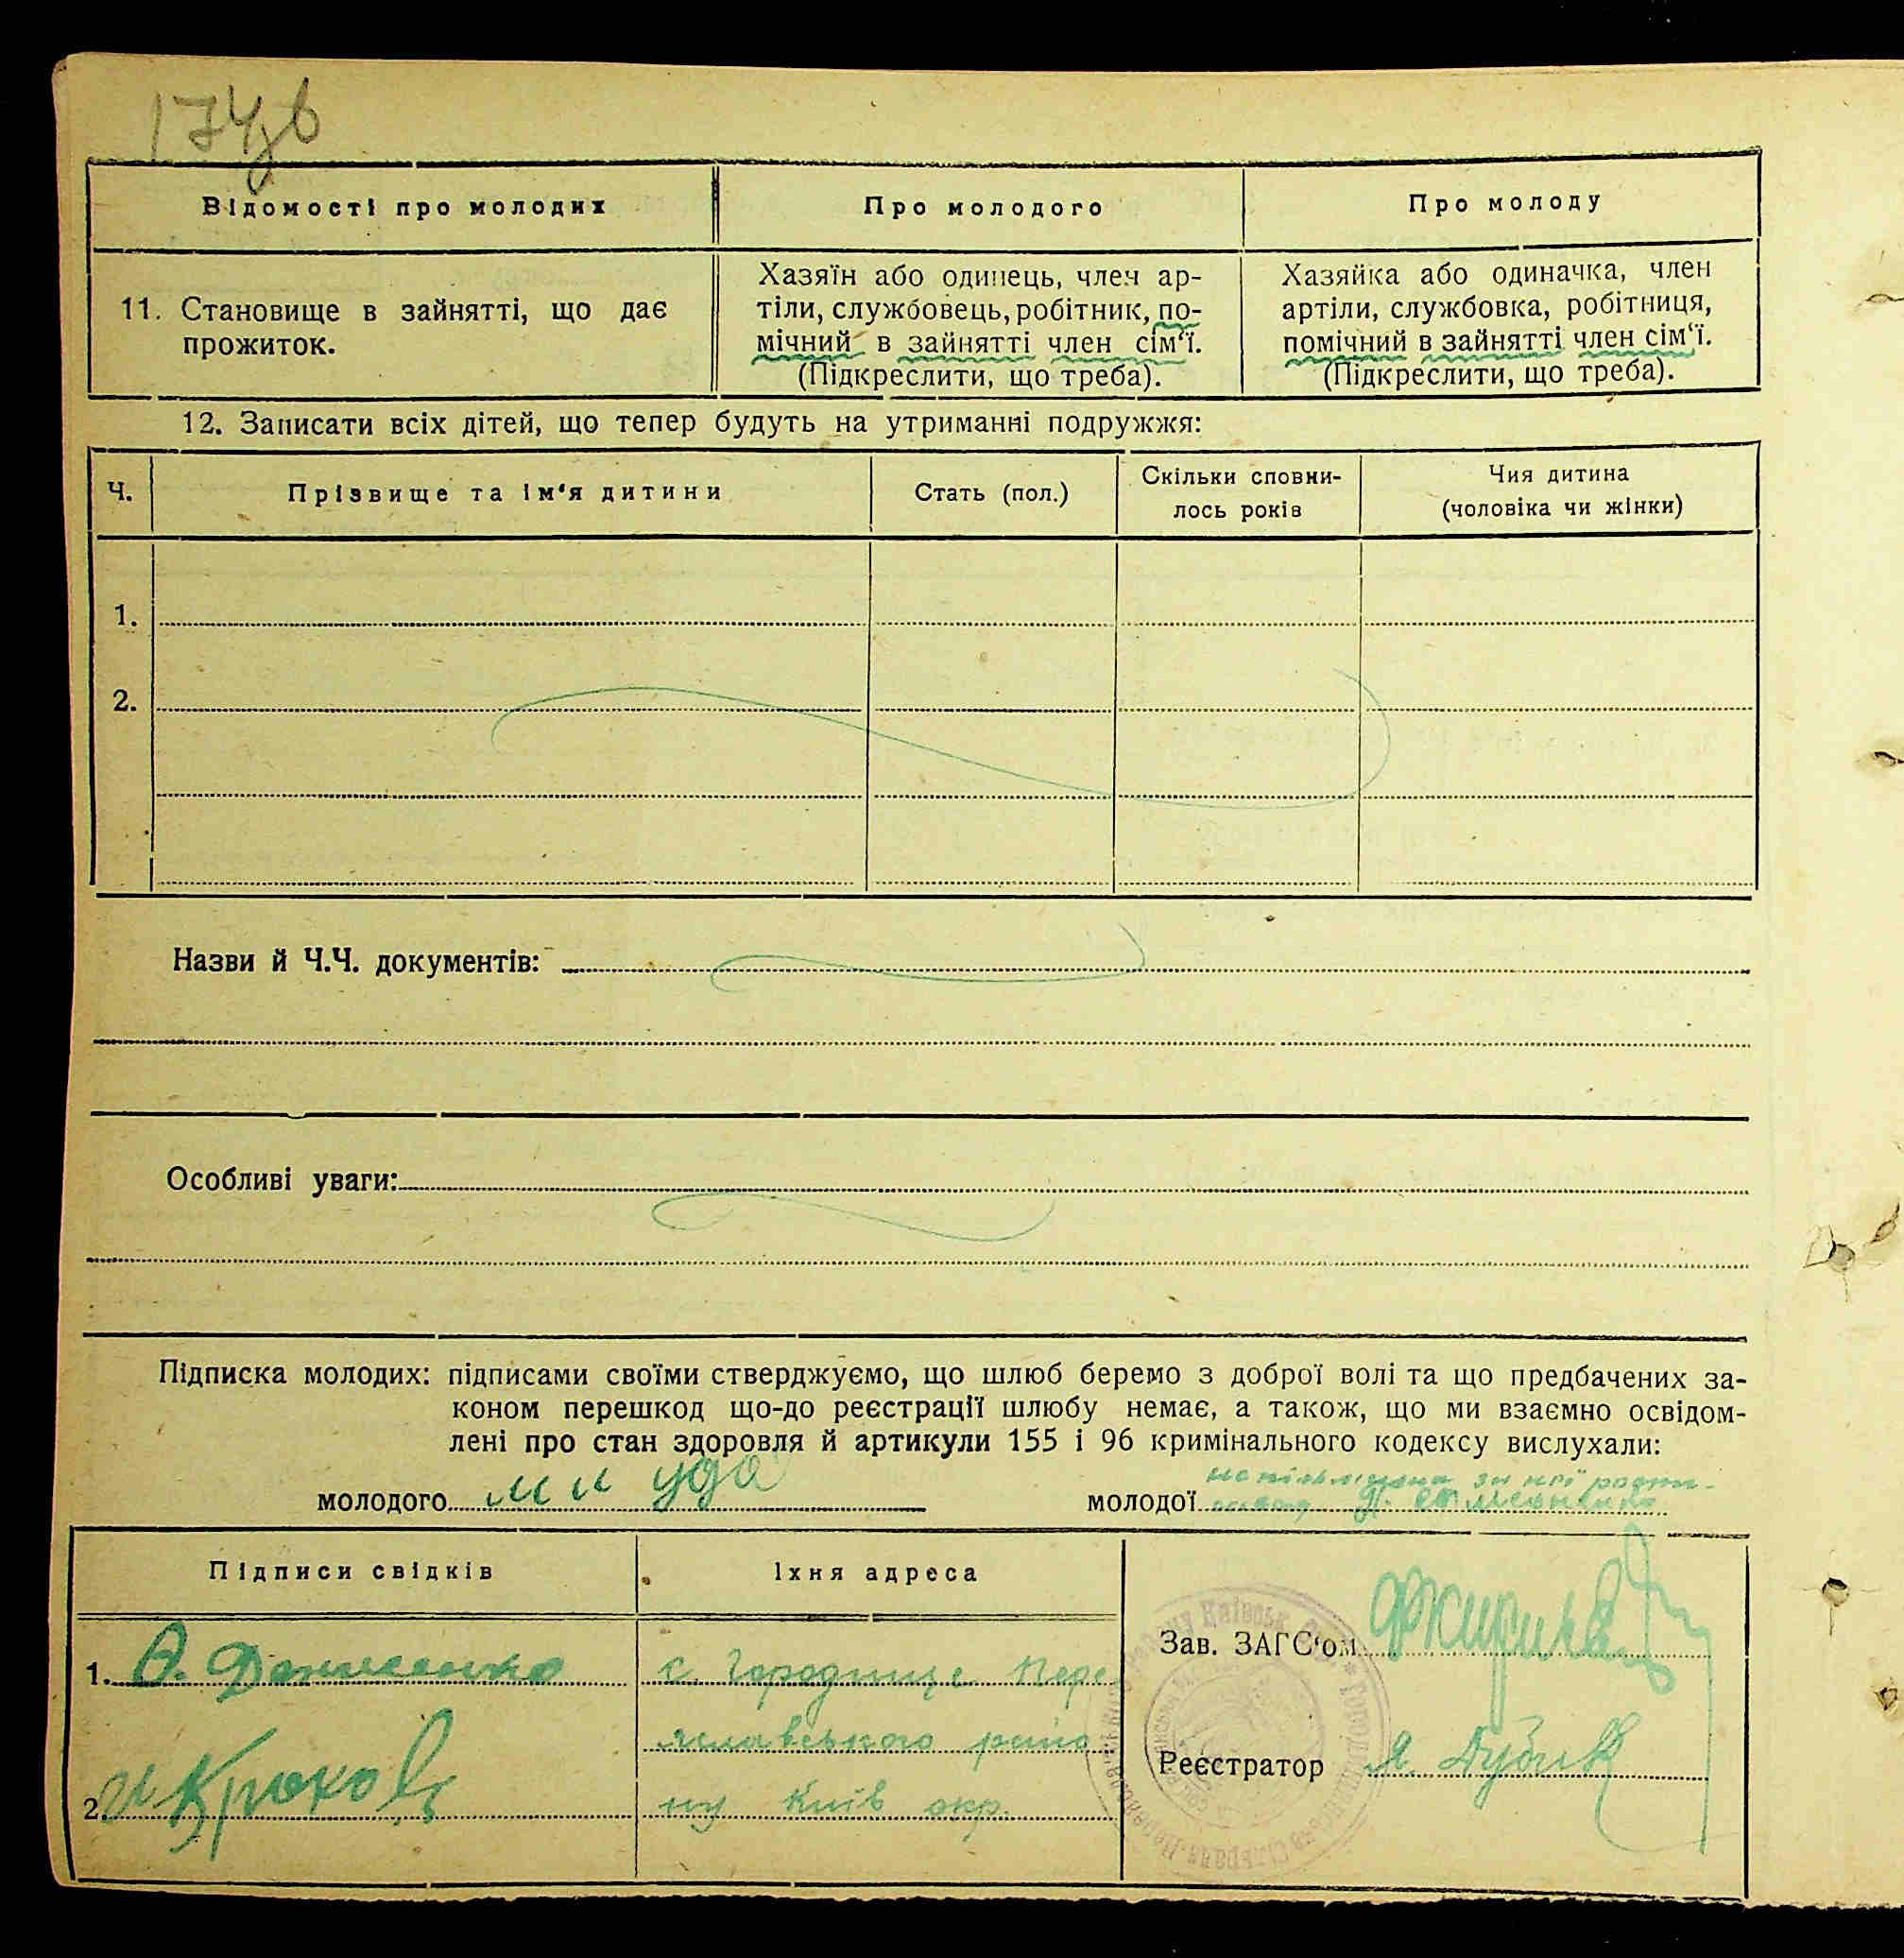 174зв
Відомості про молодих
Про молодого
Про молоду
11. Становище в зайнятті, що дає
прожиток.
Хазяїн або одинець, член ар-
тіли, службовець, робітник, по-
мічний в зайнятті член сім'ї.
(Підкреслити, що треба).
Хазяйка або одиначка, член
артіли, службовка, робітниця,
помічний в зайнятті член сім'ї.
(Підкреслити, що треба).
12. Записати всіх дітей, що тепер будуть на утриманні подружжя:
Ч.
Прізвище та ім'я дитини
Стать (пол.)
Скільки сповни-
лось років
Чия дитина
(чоловіка чи жінки)
1.
2.
Назви й Ч.Ч. документів:
Особливі уваги:
Підписка молодих: підписами своїми стверджуємо, що шлюб беремо з доброї волі та що предбачених за-
коном перешкод що-до реєстрації шлюбу немає, а також, що ми взаємно освідом-
лені про стан здоровля й артикули 155 і 96 кримінального кодексу вислухали:
молодого
молодої за неї
Підписи свідків
Їхня адреса
1. Даниленко
с. Городище Пере
яславського райо
2.
ну Київ окр.
Зав. ЗАГС'ом
Реєстратор